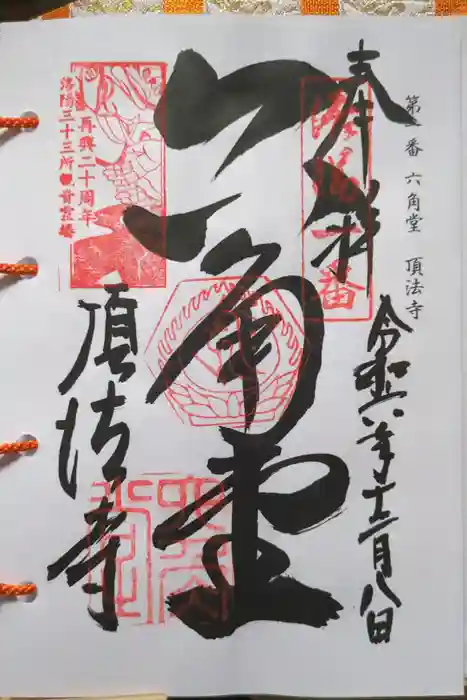 第一番 六角堂 頂法寺
奉拝
令和六年十二月八日
六角堂
頂法寺
再興二十周年
洛陽三十三所観音霊場